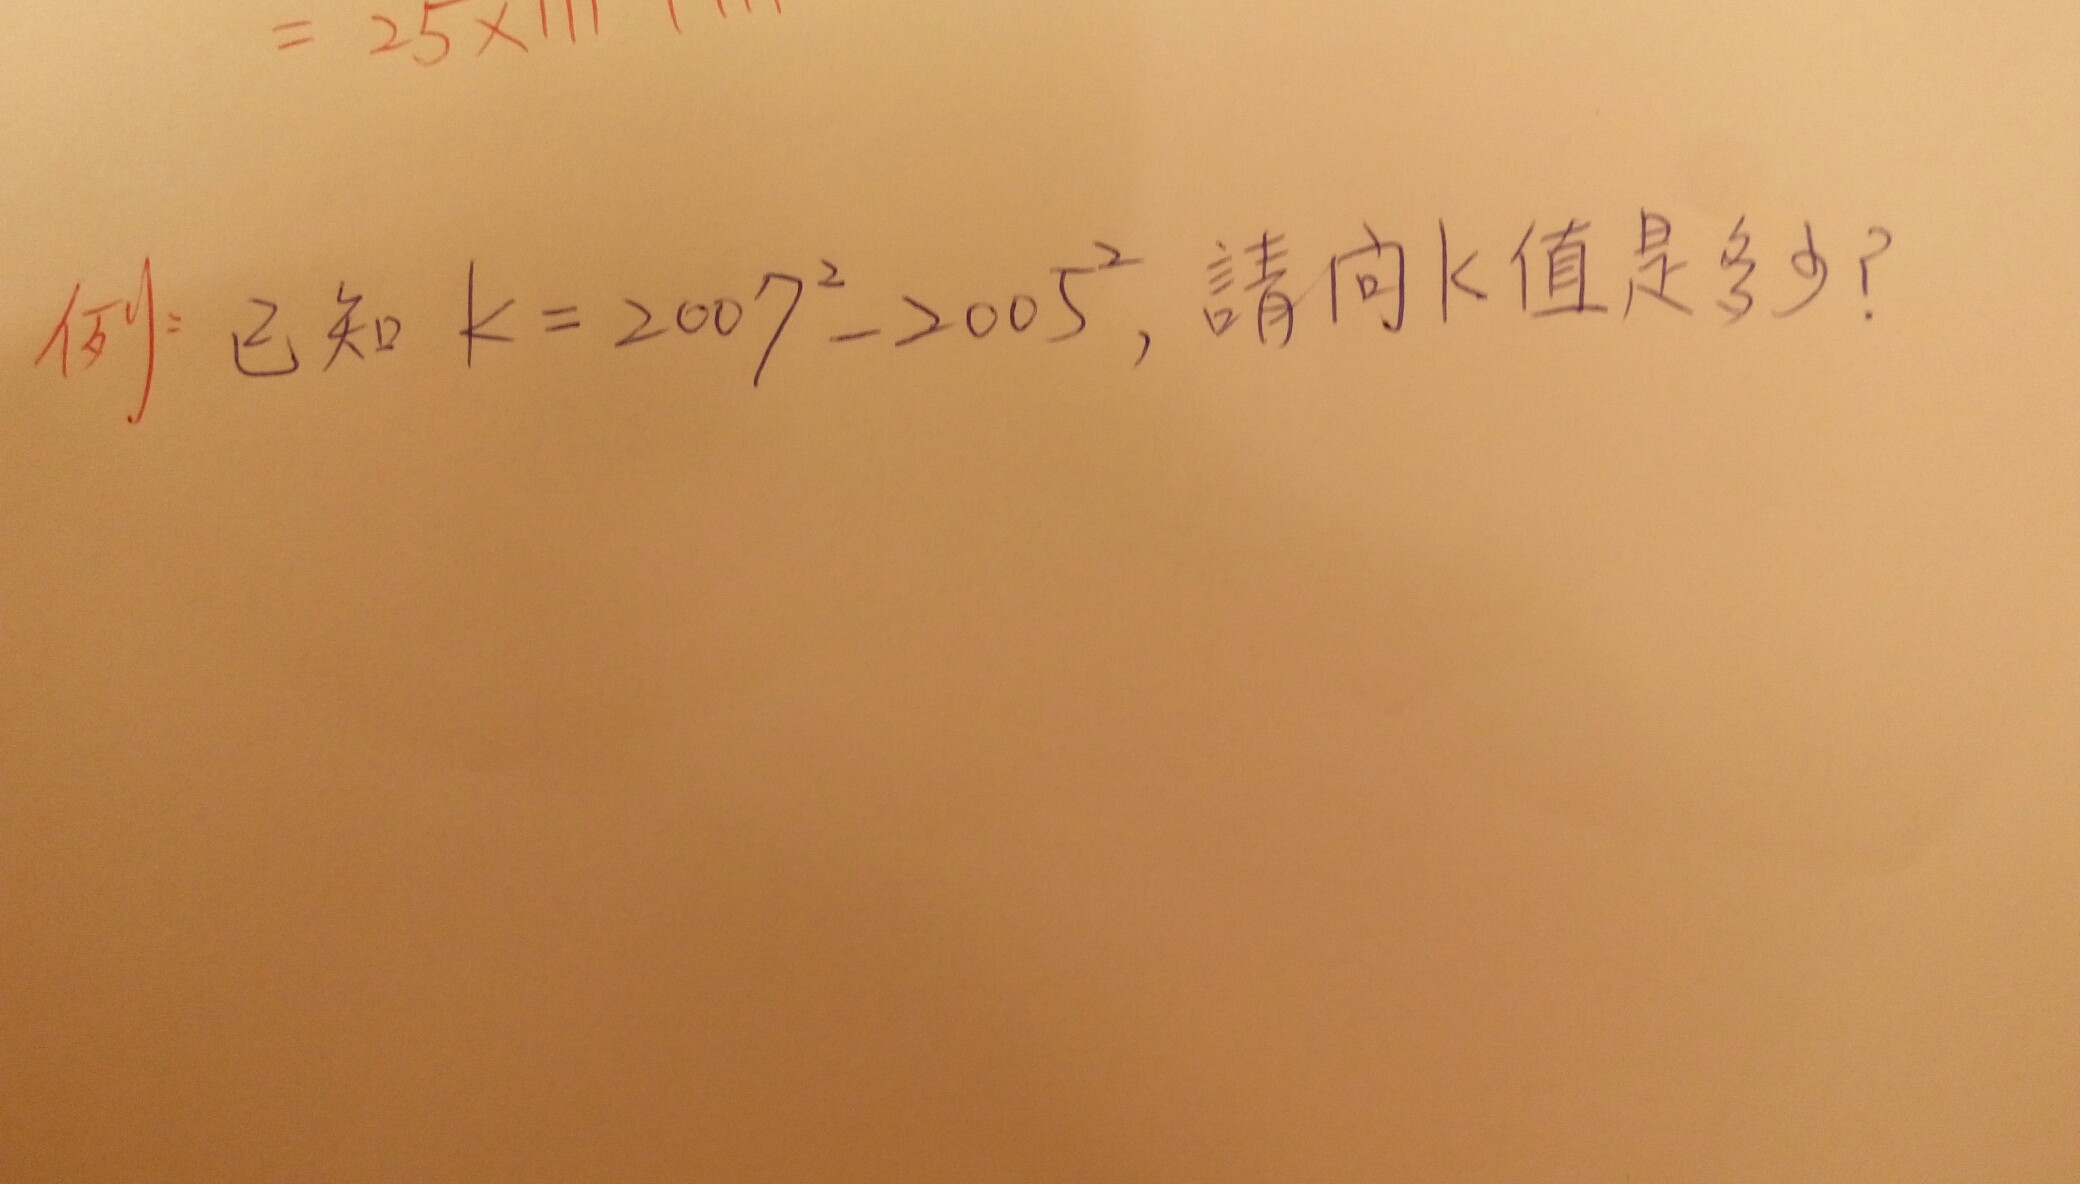 = 25×111
例: 已知 k = 2007² - 2005², 請问k值是多少?